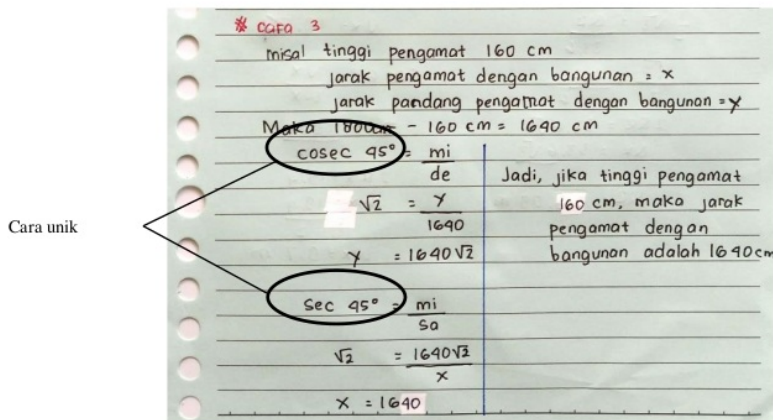 * cara 3
misal tinggi pengamat 160 cm
jarak pengamat dengan bangunan = x
jarak pandang pengamat dengan bangunan = y
Maka 1800cm - 160 cm = 1640 cm
cosec 45° = mi/de
√2 = y/1640
y = 1640√2
sec 45° = mi/sa
√2 = 1640√2/x
x = 1640
Jadi, jika tinggi pengamat
160 cm, maka jarak
pengamat dengan
bangunan adalah 1640cm
Cara unik